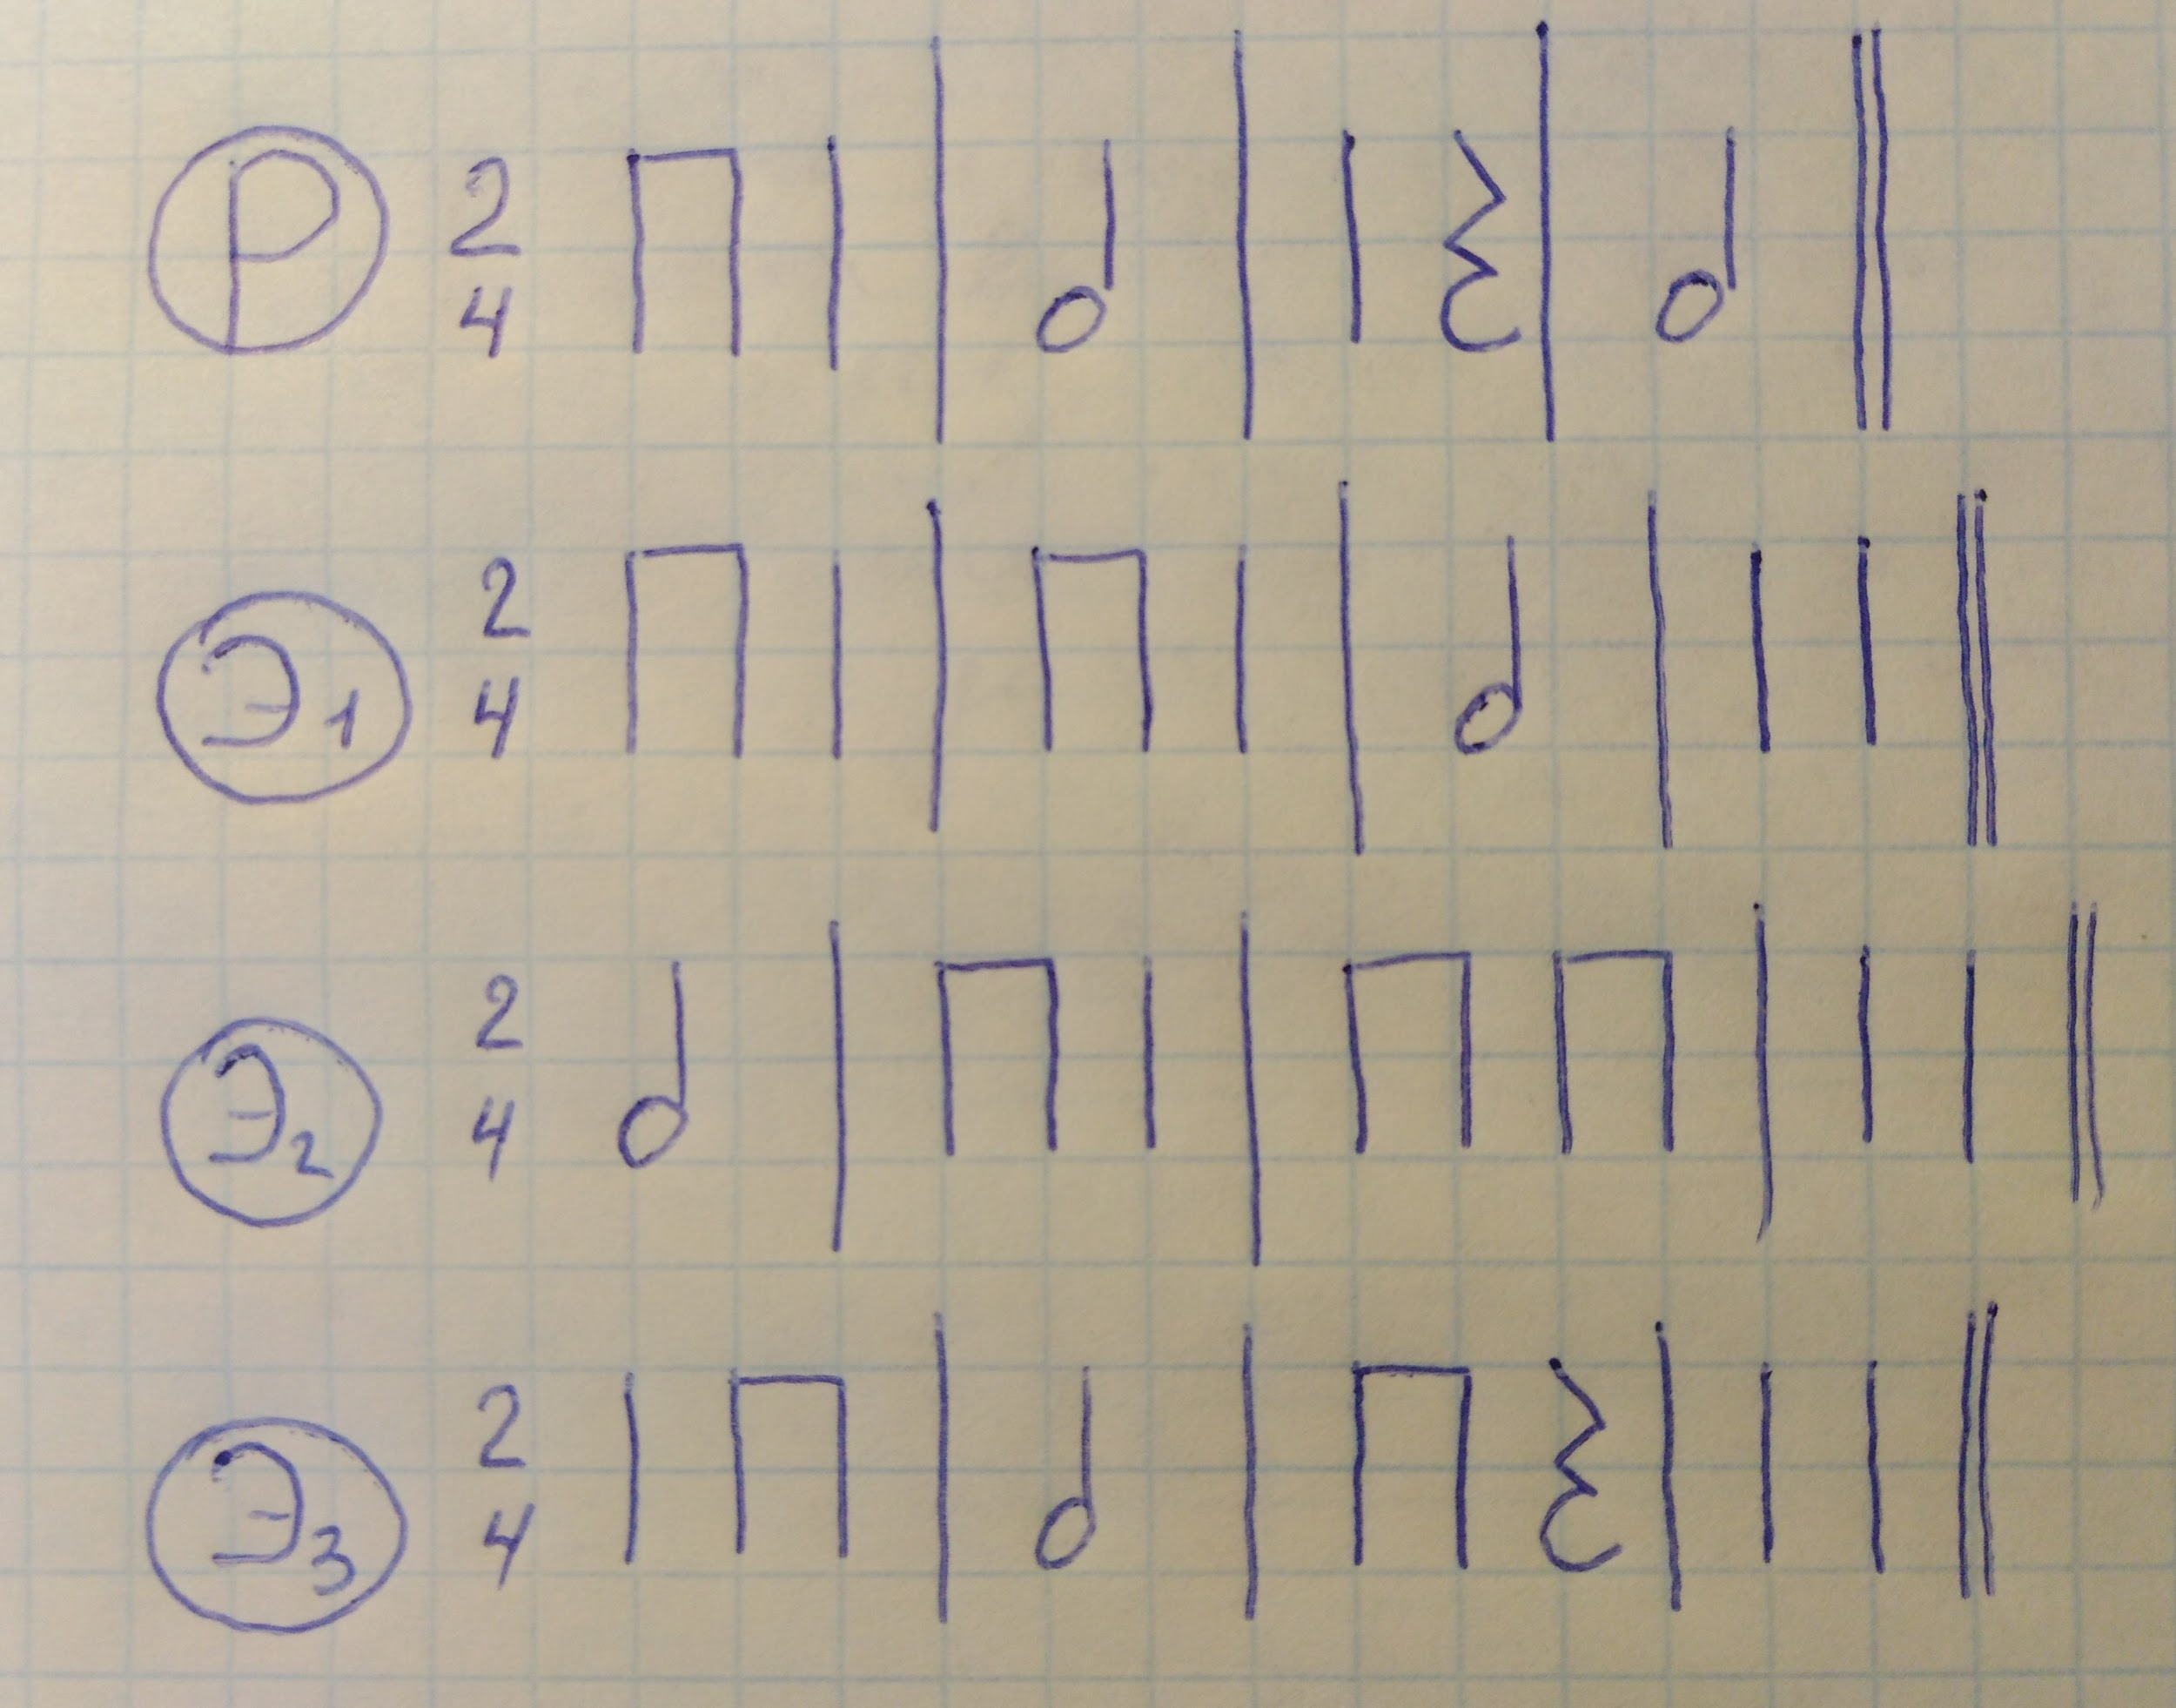 Р 2/4
Э1 2/4
Э2 2/4
Э3 2/4